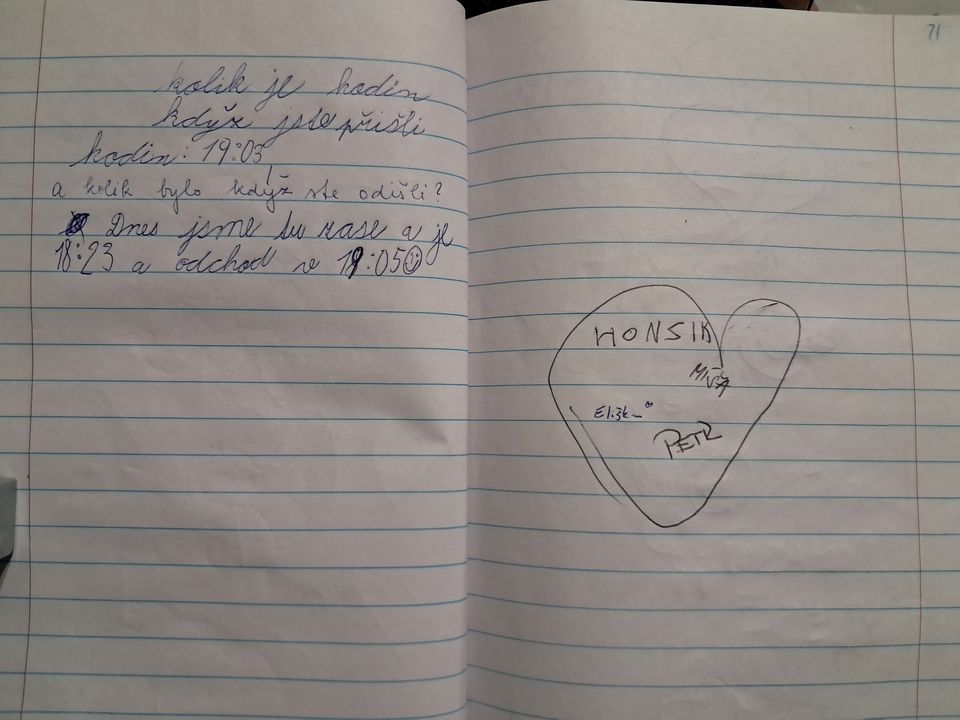 kolik je hodin
když jste přišli
hodin: 19:03
a kolik bylo když ste odišli?
Dnes jsme tu zase a je
18:23 a odchod v 19:05
71
HONSIK
MÍŠA
Elišk
PETR